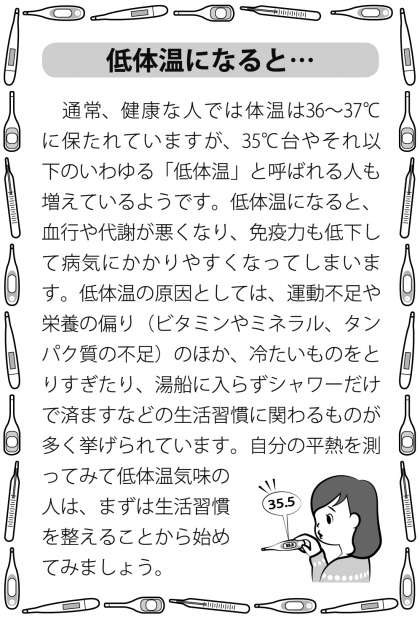 低体温になると…
通常、健康な人では体温は36～37℃
に保たれていますが、35℃台やそれ以
下のいわゆる「低体温」と呼ばれる人も
増えているようです。低体温になると、
血行や代謝が悪くなり、免疫力も低下し
て病気にかかりやすくなってしまいま
す。低体温の原因としては、運動不足や
栄養の偏り（ビタミンやミネラル、タン
パク質の不足）のほか、冷たいものをと
りすぎたり、湯船に入らずシャワーだけ
で済ますなどの生活習慣に関わるものが
多く挙げられています。自分の平熱を測
ってみて低体温気味の
人は、まずは生活習慣
を整えることから始め
てみましょう。
35.5